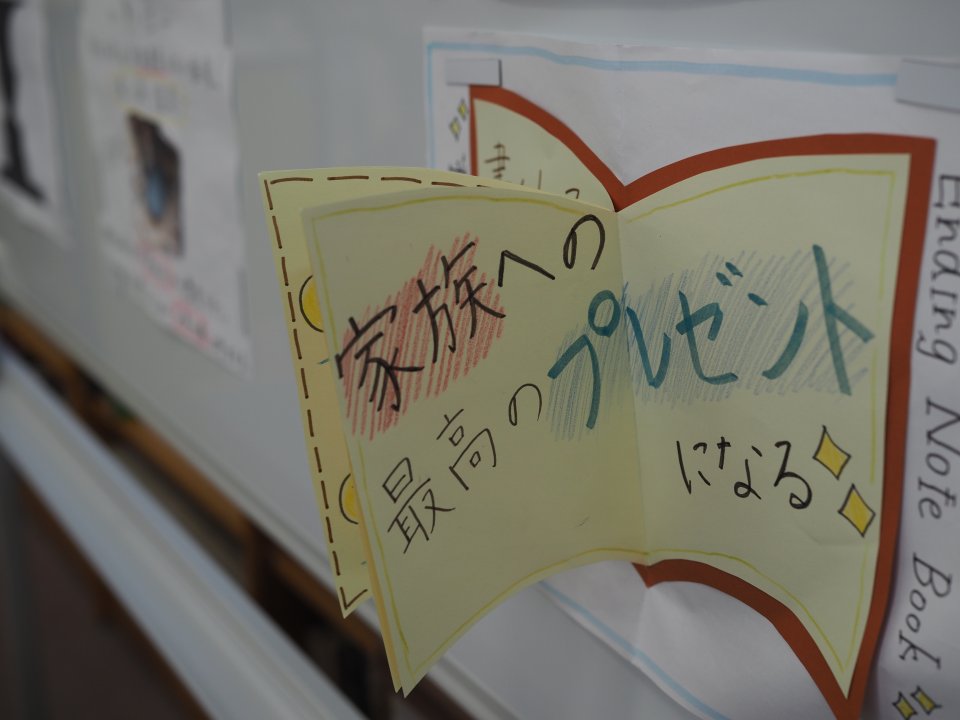 家族への
最高のプレゼント
になる
Ending Note Book